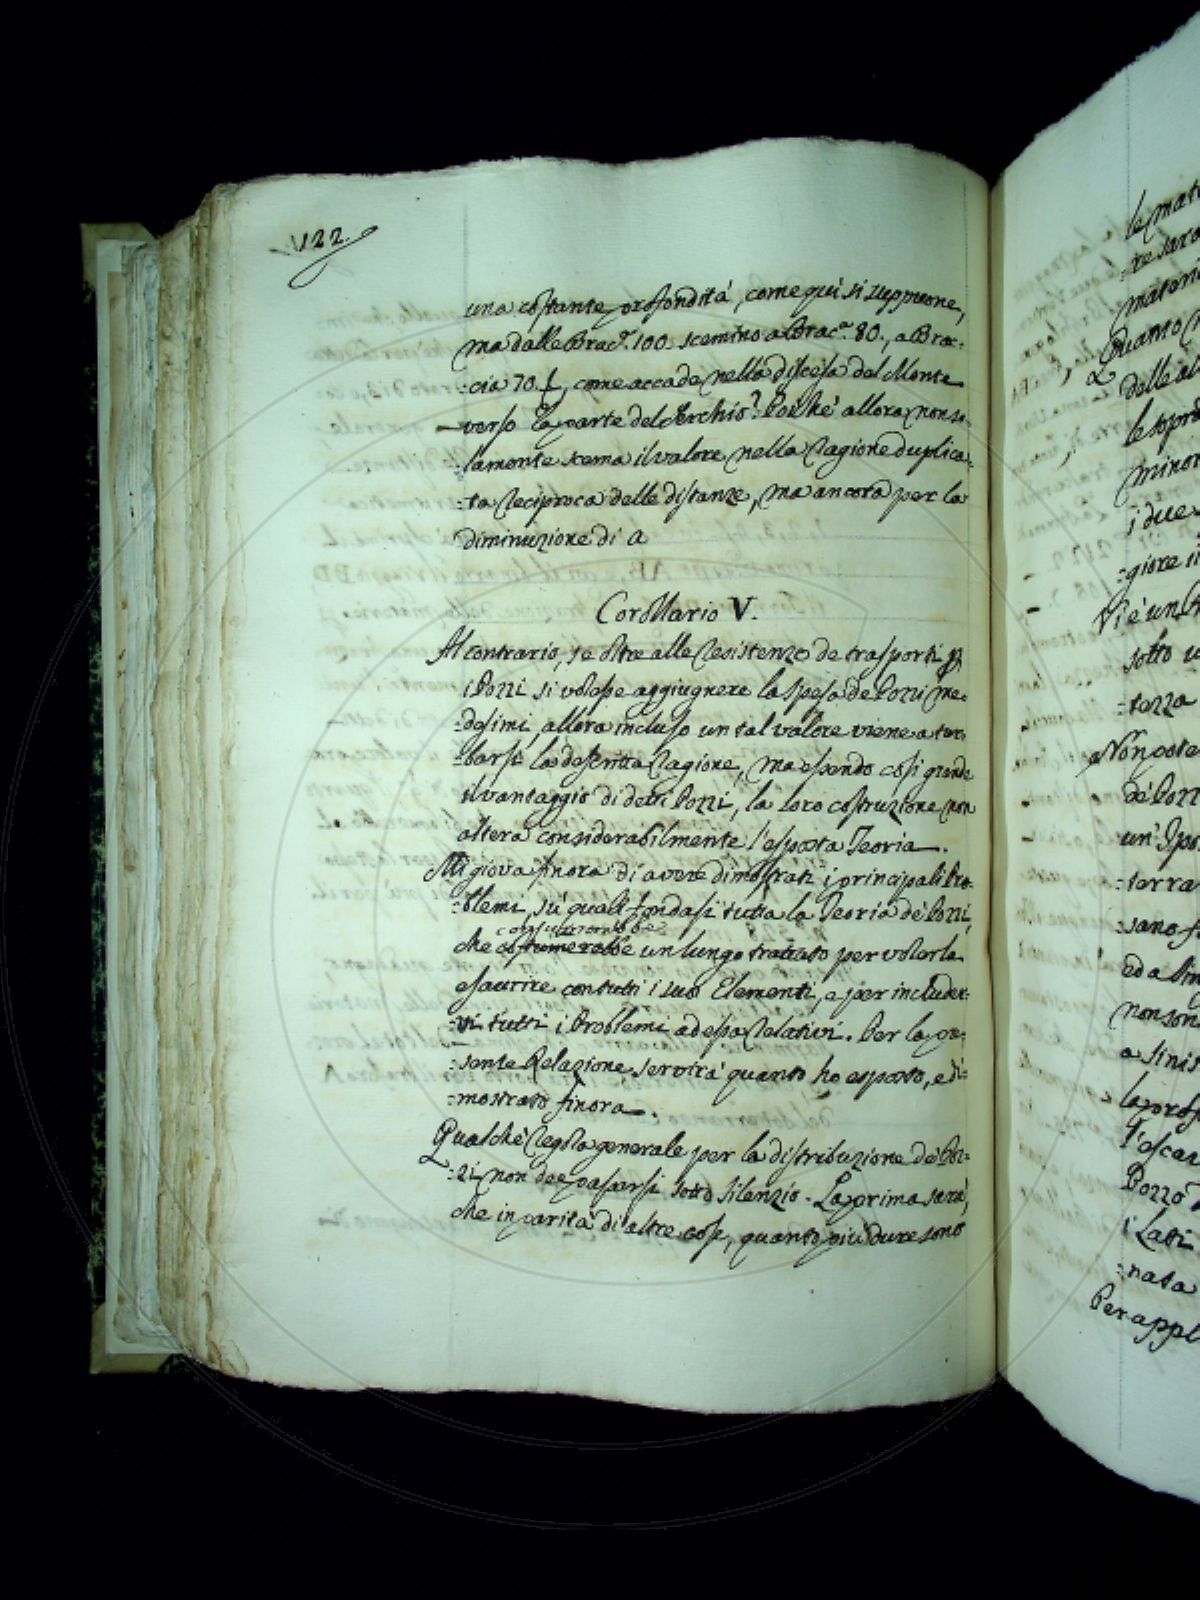 122.
una costante profondità, come quì si suppone,
ma dalle Brac.ª 100. scemino a Brac.ª 80., a Brac-
:cia 70. &, come accade nella discesa del Monte
verso la parte del Serchio? Poiché allora non so-
lamente scema il valore nella ragione duplica-
:ta reciproca delle distanze, ma ancora per la
diminuzione di a
Corollario V.
Al contrario, se oltre alle resistenze de trasporti p
i Pozzi si volesse aggiugnere la spesa de Pozzi me-
:desimi, allora incluso un tal valore viene a tur-
:barsi la descritta ragione, ma essendo così grande
il vantaggio di detti Pozzi, la loro costruzione non
altera considerabilmente l'esposta Teoria.
Mi giova finora di avere dimostrati i principali Pro-
:blemi, sù quali fondasi tutta la Teoria de' Pozzi,
consumerebbe
che costumerebbe un lungo trattato per volerla
esaurire con tutti i suoi Elementi, e per includer-
:vi tutti i Problemi ad essa relativi. Per la pre-
:sente Relazione servirà quanto ho esposto, e di-
:mostrato finora.
Qualche regola generale per la distribuzione de' Poz-
:zi non dee passarsi sotto silenzio. La prima sarà,
che in parità di altre cose, quanto più dure sono
le mat
:re sara
materi
Quanto
delle al
le sopra
minor
i due
:giore i
Vi è un
sotto u
:tezza
Non pote
de' Pozz
un' Ipo
:terra
:sano fa
ed a Sin
non son
a sinis
la prof
l'escav
Pozzo
i Lati
:nata
Per appl